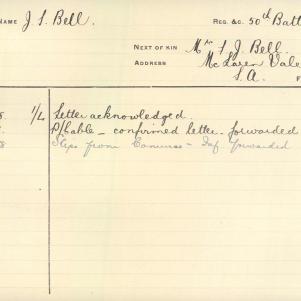 NAME J. S. Bell. REG. &C. 50th Batt
NEXT OF KIN Mr S. J. Bell.
ADDRESS McLaren Vale
S.A.
8 1/4 Letter acknowledged.
P/Cable – confirmed letter – forwarded
8 Slips from – Inf forwarded